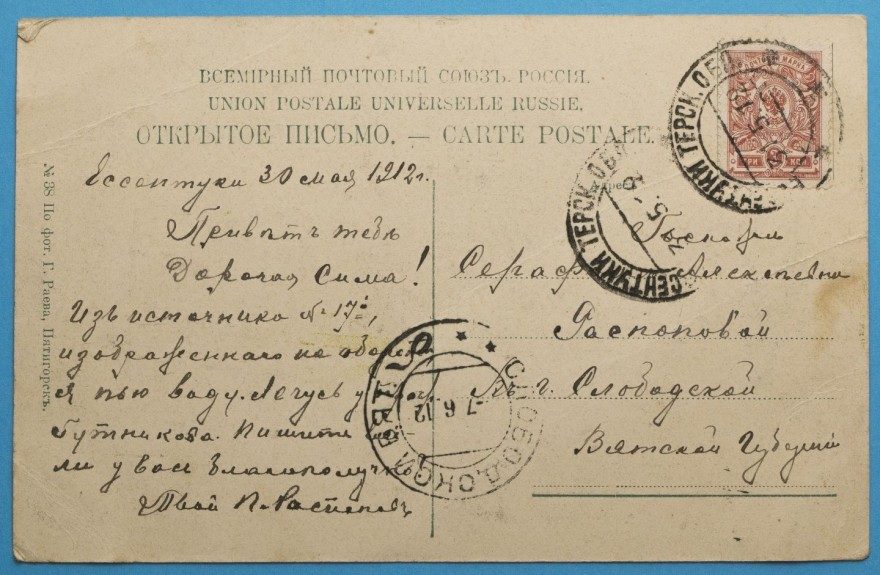 ВСЕМІРНЫЙ ПОЧТОВЫЙ СОЮЗЪ. РОССІЯ.
UNION POSTALE UNIVERSELLE RUSSIE.
ОТКРЫТОЕ ПИСЬМО. — CARTE POSTALE.
№ 38 По фот. Г. Раева, Пятигорскъ.
Ессентуки 30 мая 1912 г.
Привѣтъ тебѣ
Дорогая Сима!
Изъ источника № 17й,
изображеннаго на
я пью воду. Лечусь у
Гутникова. Пишите
ли у васъ благополучно
Твой П. Распоповъ
Госпожѣ
Сераф Алексѣевнѣ
Распоповой
Въ г. Слободской
Вятской Губерніи
ЕССЕНТУКИ ТЕРСК. ОБЛ.
СЕНТУКИ ТЕРСК. ОБЛ
СЛОБОДСКОЙ ВЯТ.
-7.6.12
МАРКА
ТРИ КОП